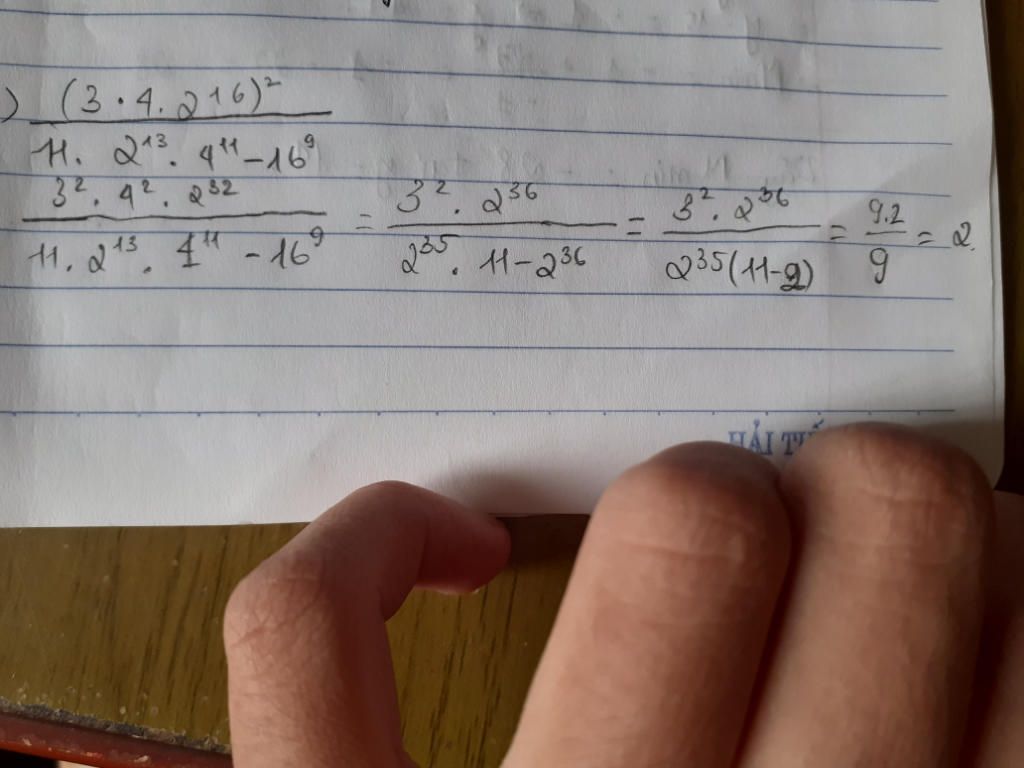 ) (3 · 4 . 2^16)^2 / 11 . 2^13 . 4^11 - 16^9
3^2 . 4^2 . 2^32 / 11 . 2^13 . 4^11 - 16^9 = 3^2 . 2^36 / 2^35 . 11 - 2^36 = 3^2 . 2^36 / 2^35 (11 - 2) = 9.2 / 9 = 2.
HẢI